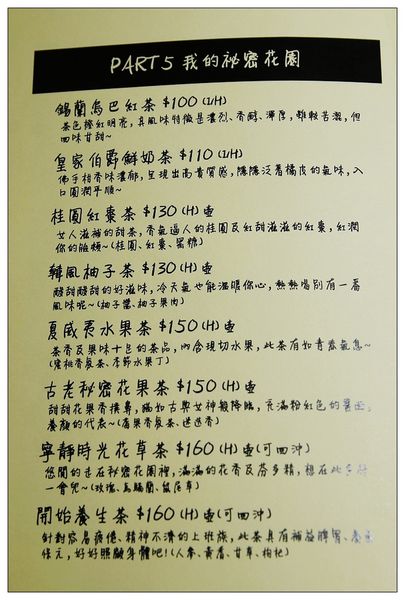 PART5 我的祕密花園
錫蘭烏巴紅茶 $100 (I/H)
茶色橙紅明亮，其風味特徵是濃烈、香醇、渾厚，雖較苦澀，但
回味甘甜~
皇家伯爵鮮奶茶 $110 (I/H)
佛手柑香味濃郁，呈現出高貴質感，隱隱泛著橘皮的氣味，入
口圓潤平順~
桂圓紅棗茶 $130 (H) 壺
女人滋補的甜茶，香氣逼人的桂圓及紅甜滋滋的紅棗，紅潤
你的臉頰~(桂圓、紅棗、蜜糖)
韓風柚子茶 $130 (H) 壺
酸甜酸甜的好滋味，冷天氣也能溫暖你心，熱熱喝別有一番
風味呢~(柚子醬、柚子果肉)
夏威夷水果茶 $150 (H) 壺
茶香及果味十足的茶品，內含現切水果，此茶有如青春氣息~
(蜜桃香氛茶、季節水果丁)
古老祕密花果茶 $150 (H) 壺
甜甜花果香撲鼻，宛如古典女神般降臨，充滿粉紅色的
養顏的代表~(
寧靜時光花草茶 $160 (H) 壺(可回沖)
悠閒的走在祕密花園裡，滿滿的花香及芬多精，想在此
一會兒~(玫瑰、馬鞭蘭、鼠尾草)
開始養生茶 $160 (H) 壺(可回沖)
針對容易疲倦、精神不濟的上班族，此茶具有補益脾胃、
保元，好好照顧身體吧!(人參、黃耆、甘草、枸杞)